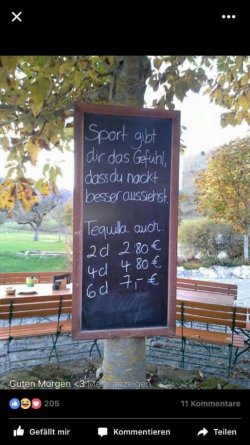 Sport gibt
dir das Gefühl,
dass du nackt
besser aussiehst.
Tequilla auch.
2cl 2.80 €
4cl 4.80 €
6cl 7,- €
Guten Morgen <3 Mehr anzeigen
205
11 Kommentare
Gefällt mir
Kommentieren
Teilen